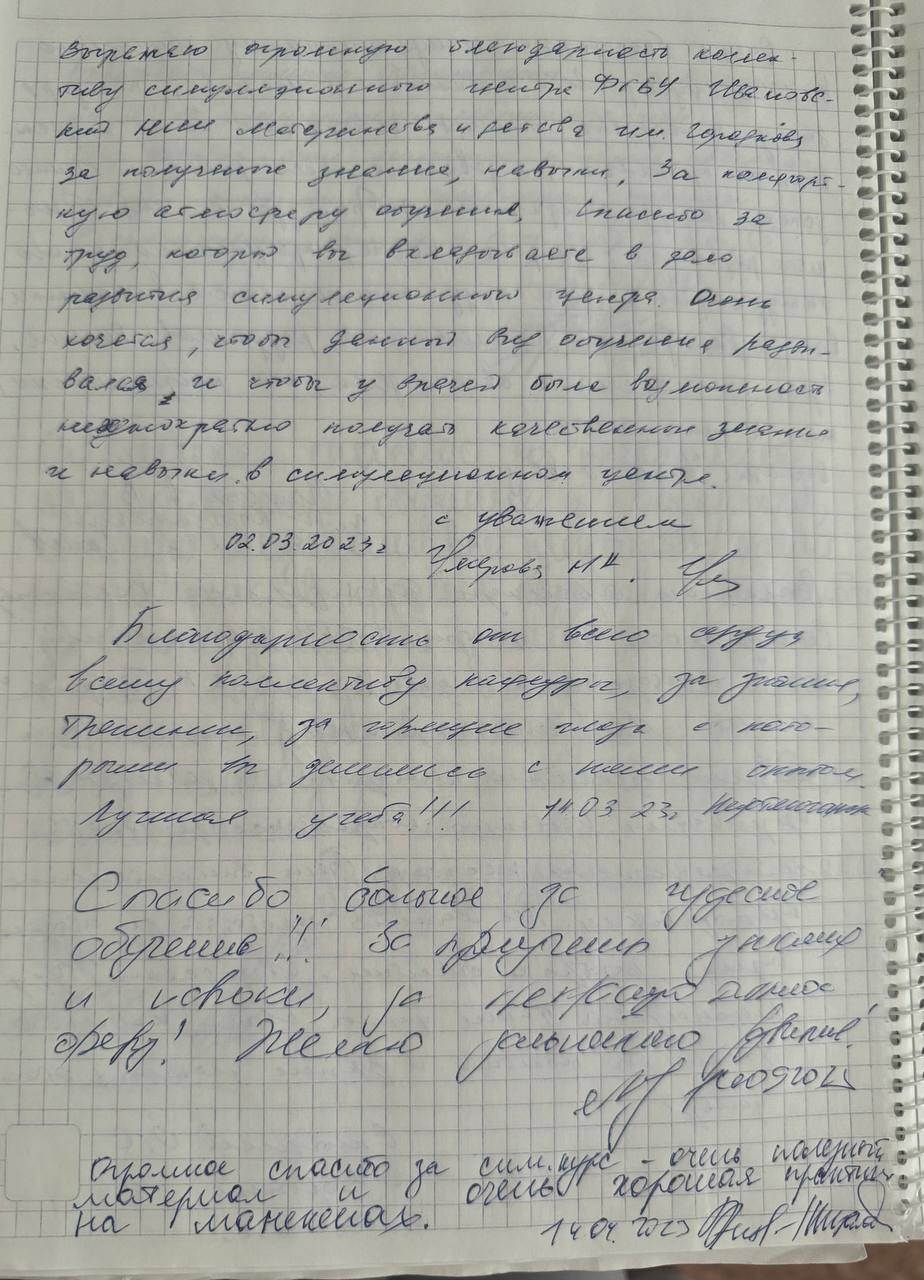 Выражаю огромную благодарность коллек-
тиву симуляционного центра ФГБУ Ивановс-
кий НИИ материнства и детства им. Городкова
за полученые знание, навыки, за комфорт-
ную атмосферу обучения. Спасибо за
труд, который вы вкладываете в дело
развития симуляционного центра. Очень
хочется, чтобы данный вид обучения разви-
вался, и чтобы у врачей была возможность
неоднократно получать качественные знания
и навыки в симуляционном центре.
с уважением
02.03.2023г
Благодарность от всего сердца
всему коллективу кафедры, за знания,
тренинги, за горящие глаза с кото-
рыми вы делились с нами опытом
Лучшая учеба!!! 14.03 23г
Спасибо большое за чудесное
обучение!!! За полученные знания
и навыки, за прекрасную атмос
феру! Желаю дальнейшего развития!
Огромное спасибо за сим.курс - очень полезный
материал и очень хорошая практика
на манекенах.
14.04.2023